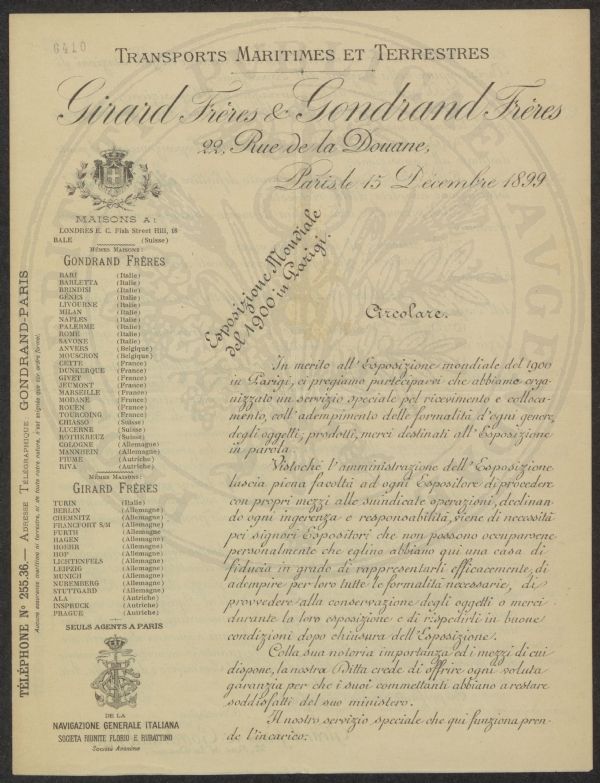 6410
TRANSPORTS MARITIMES ET TERRESTRES
Girard Frères & Gondrand Frères
22, Rue de la Douane,
Paris, le 15 Décembre 1899
MAISONS A:
LONDRES E. C. Fish Street Hill, 18
BALE (Suisse)
MÊMES MAISONS:
GONDRAND FRÈRES
BARI (Italie)
BARLETTA (Italie)
BRINDISI (Italie)
GÊNES (Italie)
LIVOURNE (Italie)
MILAN (Italie)
NAPLES (Italie)
PALERME (Italie)
ROME (Italie)
SAVONE (Italie)
ANVERS (Belgique)
MOUSCRON (Belgique)
CETTE (France)
DUNKERQUE (France)
GIVET (France)
JEUMONT (France)
MARSEILLE (France)
MODANE (France)
ROUEN (France)
TOURCOING (France)
CHIASSO (Suisse)
LUCERNE (Suisse)
ROTHKREUZ (Suisse)
COLOGNE (Allemagne)
MANNHEIN (Allemagne)
FIUME (Autriche)
RIVA (Autriche)
MÊMES MAISONS:
GIRARD FRÈRES
TURIN (Italie)
BERLIN (Allemagne)
CHEMNITZ (Allemagne)
FRANCFORT S/M (Allemagne)
FURTH (Allemagne)
HAGEN (Allemagne)
HOEHR (Allemagne)
HOF (Allemagne)
LICHTENFELS (Allemagne)
LEIPZIG (Allemagne)
MUNICH (Allemagne)
NUREMBERG (Allemagne)
STUTTGARD (Allemagne)
ALA (Autriche)
INSPRUCK (Autriche)
PRAGUE (Autriche)
SEULS AGENTS A PARIS
DE LA
NAVIGAZIONE GENERALE ITALIANA
SOCIETÀ RIUNITE FLORIO E RUBATTINO
Société Anonyme
TÉLÉPHONE Nº 255.36. — ADRESSE TÉLÉGRAPHIQUE GONDRAND-PARIS
Aucune assurance maritime ni terrestre, ni de toute autre nature, n'est soignée que sur ordre formel.
Esposizione Mondiale
del 1900 in Parigi.
Circolare.
In merito all'Esposizione mondiale del 1900
in Parigi, ci pregiamo parteciparvi che abbiamo orga-
nizzato un servizio speciale pel ricevimento e colloca-
mento, coll'adempimento delle formalità d'ogni genere,
degli oggetti, prodotti, merci destinati all'Esposizione
in parola.
Vistoché l'amministrazione dell'Esposizione
lascia piena facoltà ad ogni Espositore di provvedere
con propri mezzi alle suindicate operazioni, declinan-
do ogni ingerenza e responsabilità, viene di necessità
pei signori Espositori che non possono occuparsene
personalmente che eglino abbiano qui una casa di
fiducia in grado di rappresentarli efficacemente, di
adempire per loro tutte le formalità necessarie, di
provvedere alla conservazione degli oggetti o merci
durante la loro esposizione e di rispedirli in buone
condizioni dopo chiusura dell'Esposizione.
Colla sua notoria importanza ed i mezzi di cui
dispone, la nostra Ditta crede di offrire ogni voluta
garanzia per che i suoi committenti abbiano a restare
soddisfatti del suo ministero.
Il nostro servizio speciale che qui funziona pren-
de l'incarico: